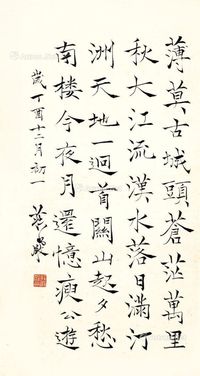 薄莫古城頭蒼茫萬里
秋大江流漢水落日滿汀
洲天地一迴首關山起夕愁
南樓今夜月還憶庾公遊
歲丁酉十二月初一